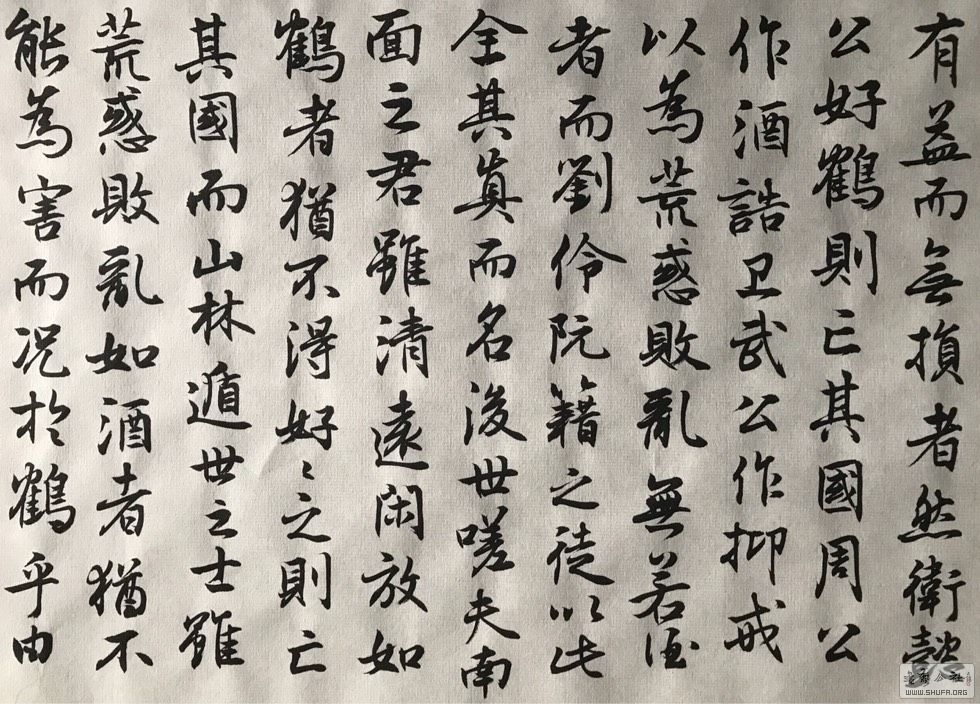 有益而無損者然衛懿
公好鶴則亡其國周公
作酒誥卫武公作抑戒
以為荒惑敗亂無若酒
者而劉伶阮籍之徒以此
全其真而名後世嗟夫南
面之君雖清遠閑放如
鶴者猶不得好〻之則亡
其國而山林遁世之士雖
荒惑敗亂如酒者猶不
能為害而况於鶴乎由
WWW.SHUFA.ORG